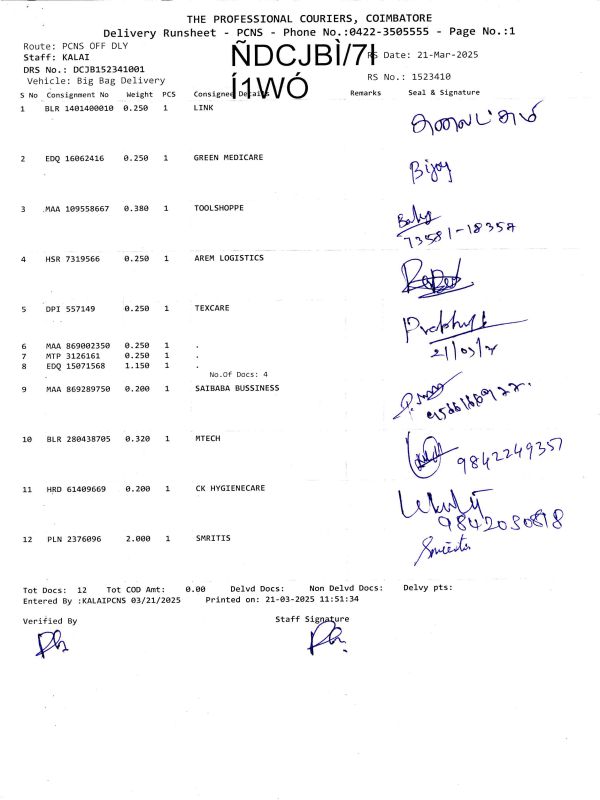 THE PROFESSIONAL COURIERS, COIMBATORE
Delivery Runsheet - PCNS - Phone No.:0422-3505555 - Page No.:1
Route: PCNS OFF DLY
ÑDCJBÌ/7I
RS Date: 21-Mar-2025
Staff: KALAI
DRS No.: DCJB152341001
Í1WÓ
RS No.: 1523410
Vehicle: Big Bag Delivery
S No Consignment No Weight PCS Consignee Details Remarks Seal & Signature
1 BLR 1401400010 0.250 1 LINK
2 EDQ 16062416 0.250 1 GREEN MEDICARE
Bijoy
3 MAA 109558667 0.380 1 TOOLSHOPPE
Baby
73581-18357
4 HSR 7319566 0.250 1 AREM LOGISTICS
5 DPI 557149 0.250 1 TEXCARE
6 MAA 869002350 0.250 1 .
7 MTP 3126161 0.250 1 .
8 EDQ 15071568 1.150 1 .
No.Of Docs: 4
9 MAA 869289750 0.200 1 SAIBABA BUSSINESS
10 BLR 280438705 0.320 1 MTECH
9842249357
11 HRD 61409669 0.200 1 CK HYGIENECARE
12 PLN 2376096 2.000 1 SMRITIS
Tot Docs: 12 Tot COD Amt: 0.00 Delvd Docs: Non Delvd Docs: Delvy pts:
Entered By :KALAIPCNS 03/21/2025 Printed on: 21-03-2025 11:51:34
Verified By Staff Signature